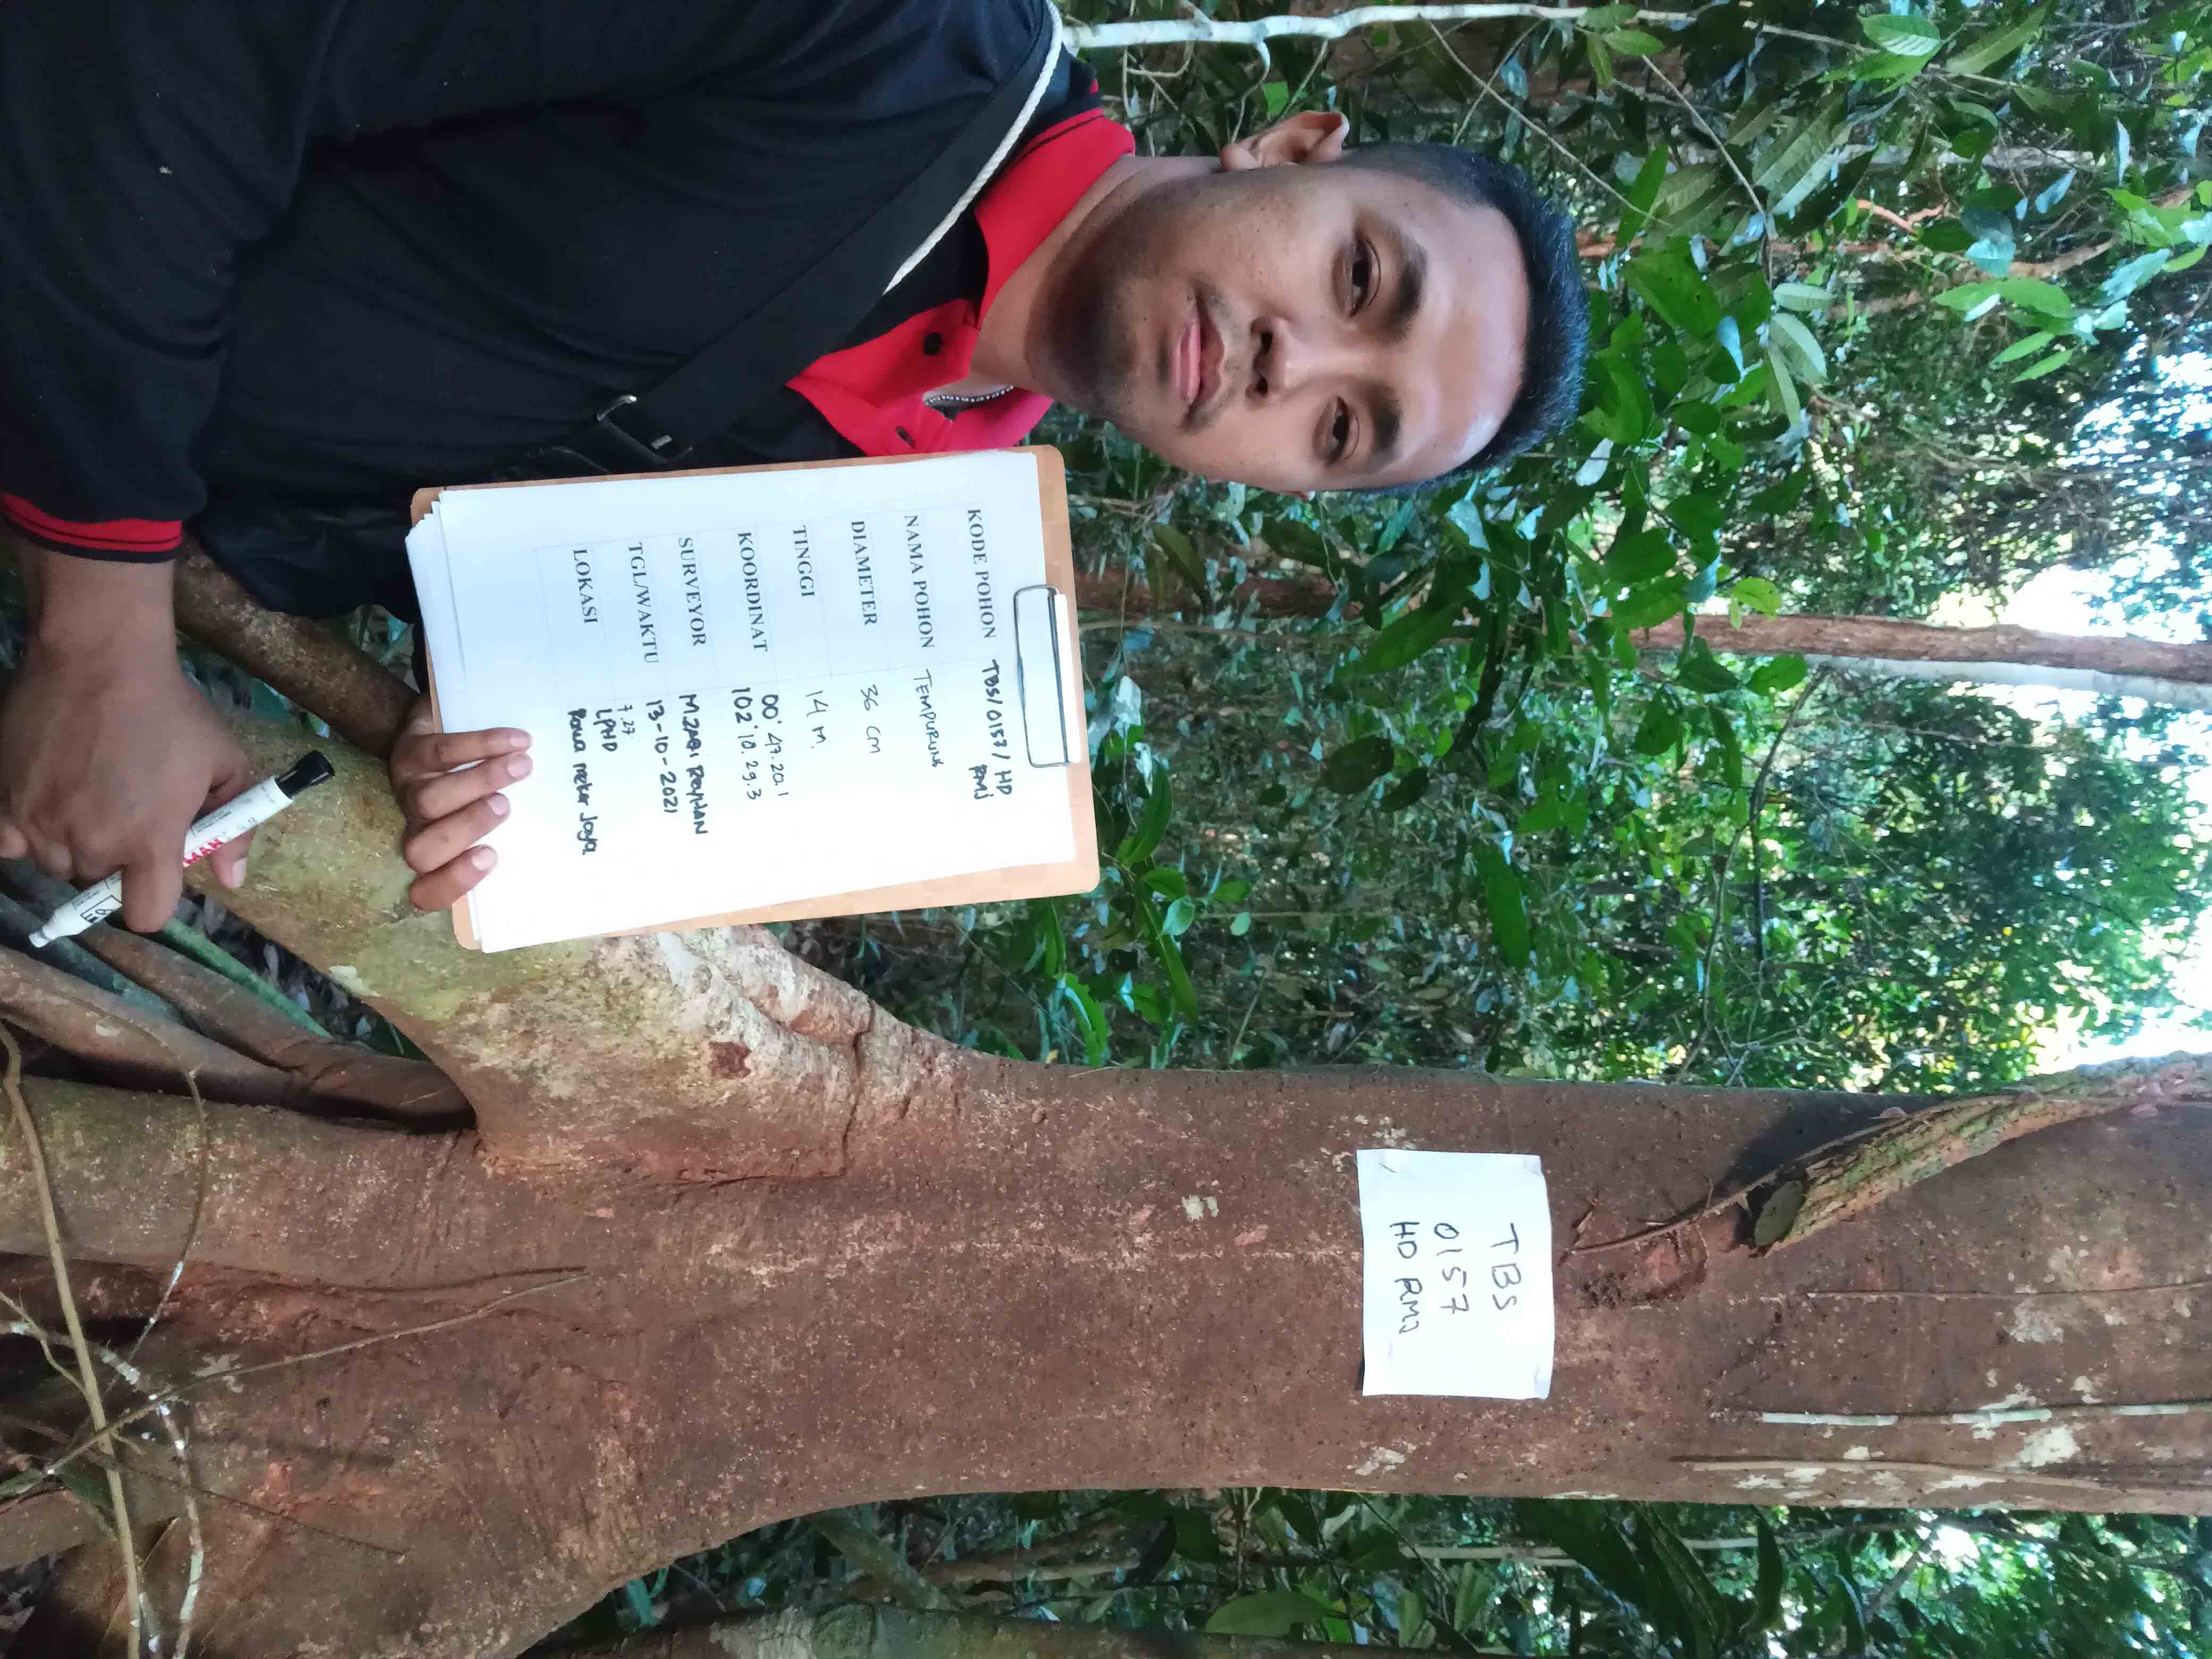 TBS
0157
HD RMJ
KODE POHON TBS/0157/ HD
RMJ
NAMA POHON TEMPURUNG
DIAMETER 36 CM
TINGGI 14 M.
KOORDINAT 00° 47.20.1
102° 10.29.3
SURVEYOR M.ZAQI REYHAN
TGL/WAKTU 13-10-2021
7.27
LOKASI LPHD
Rawa mekar Jaya.